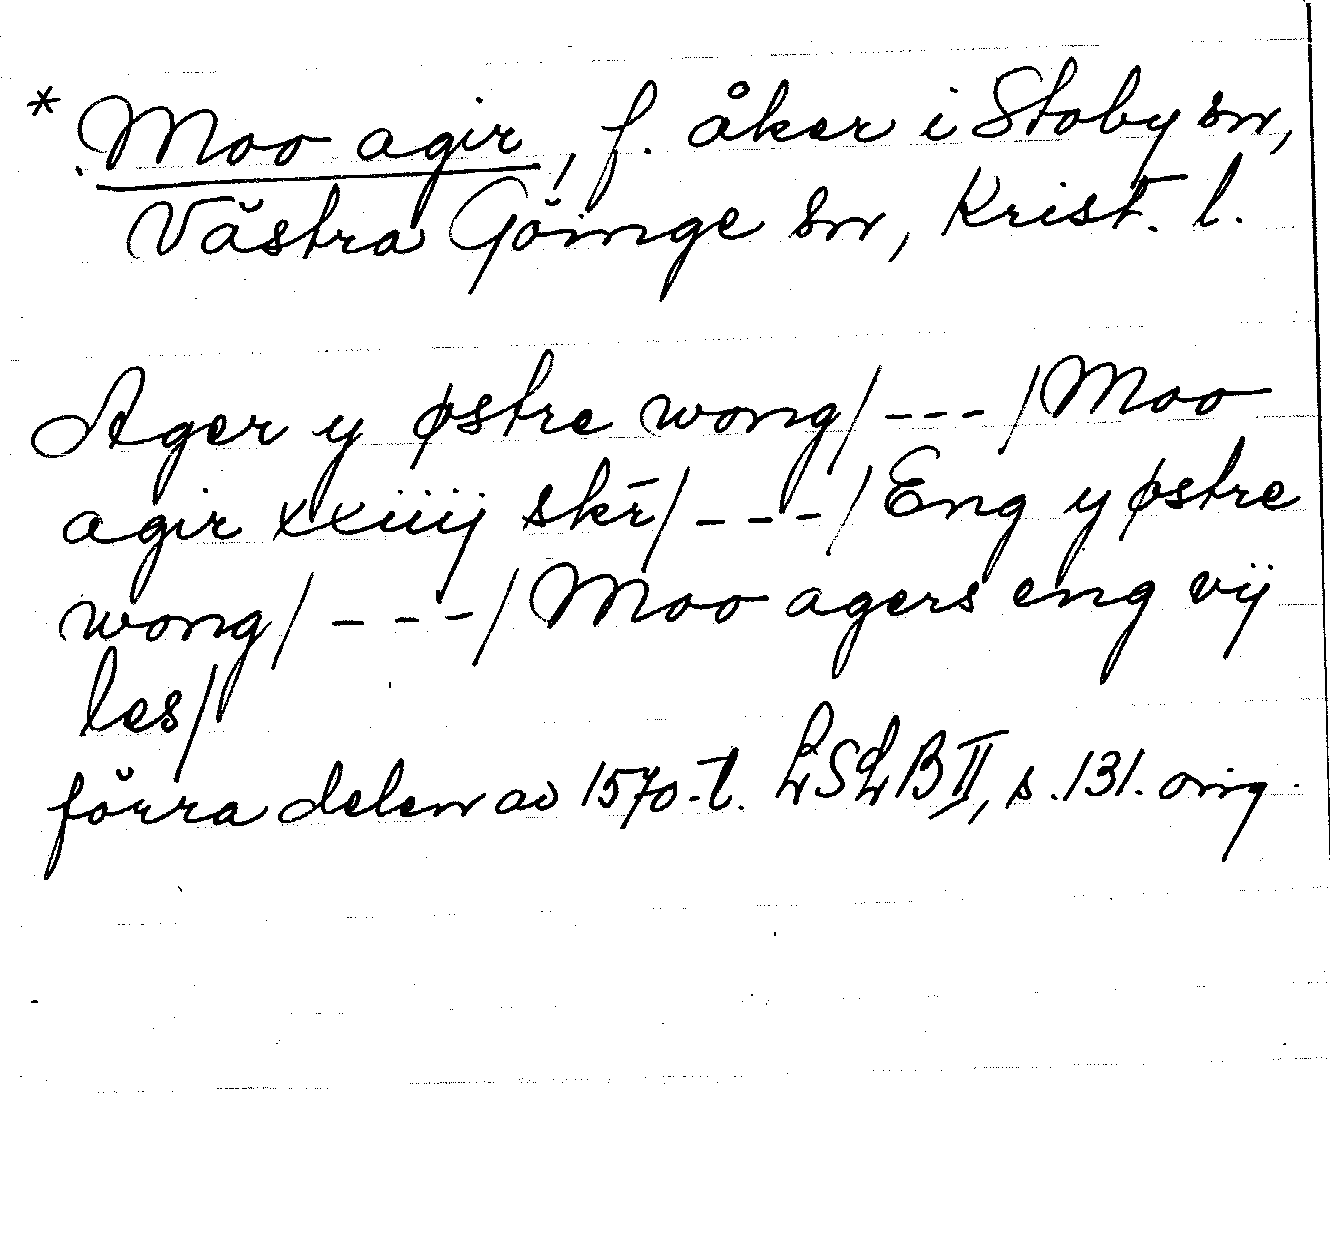 * Moo agir, f. åker i Stoby sn,
Västra Göinge sn, Krist. l.
Ager y østre wong/ - - - /Moo
agir xxiiij skr̄/ - - - /Eng y østre
wong/ - - - /Moo agers eng vij
les/
förra delen av 1570-t. LSLB II, s. 131. orig.